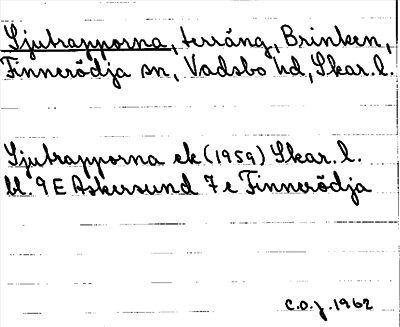 Sjutrapporna, terräng, Brinken,
Finnerödja sn, Vadsbo hd, Skar. l.
Sjutrapporna ek (1959) Skar. l.
bl. 9 E Askersund 7 e Finnerödja
C.O.J. 1962